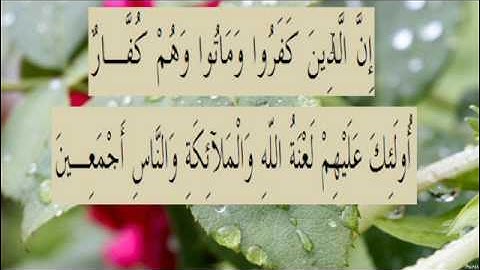 إِنَّ الَّذِينَ كَفَرُوا وَمَاتُوا وَهُمْ كُفَّـــارٌ
أُولَئِكَ عَلَيْهِمْ لَعْنَةُ اللَّهِ وَالْمَلَآئِكَةِ وَالنَّاسِ أَجْمَعِـــينَ